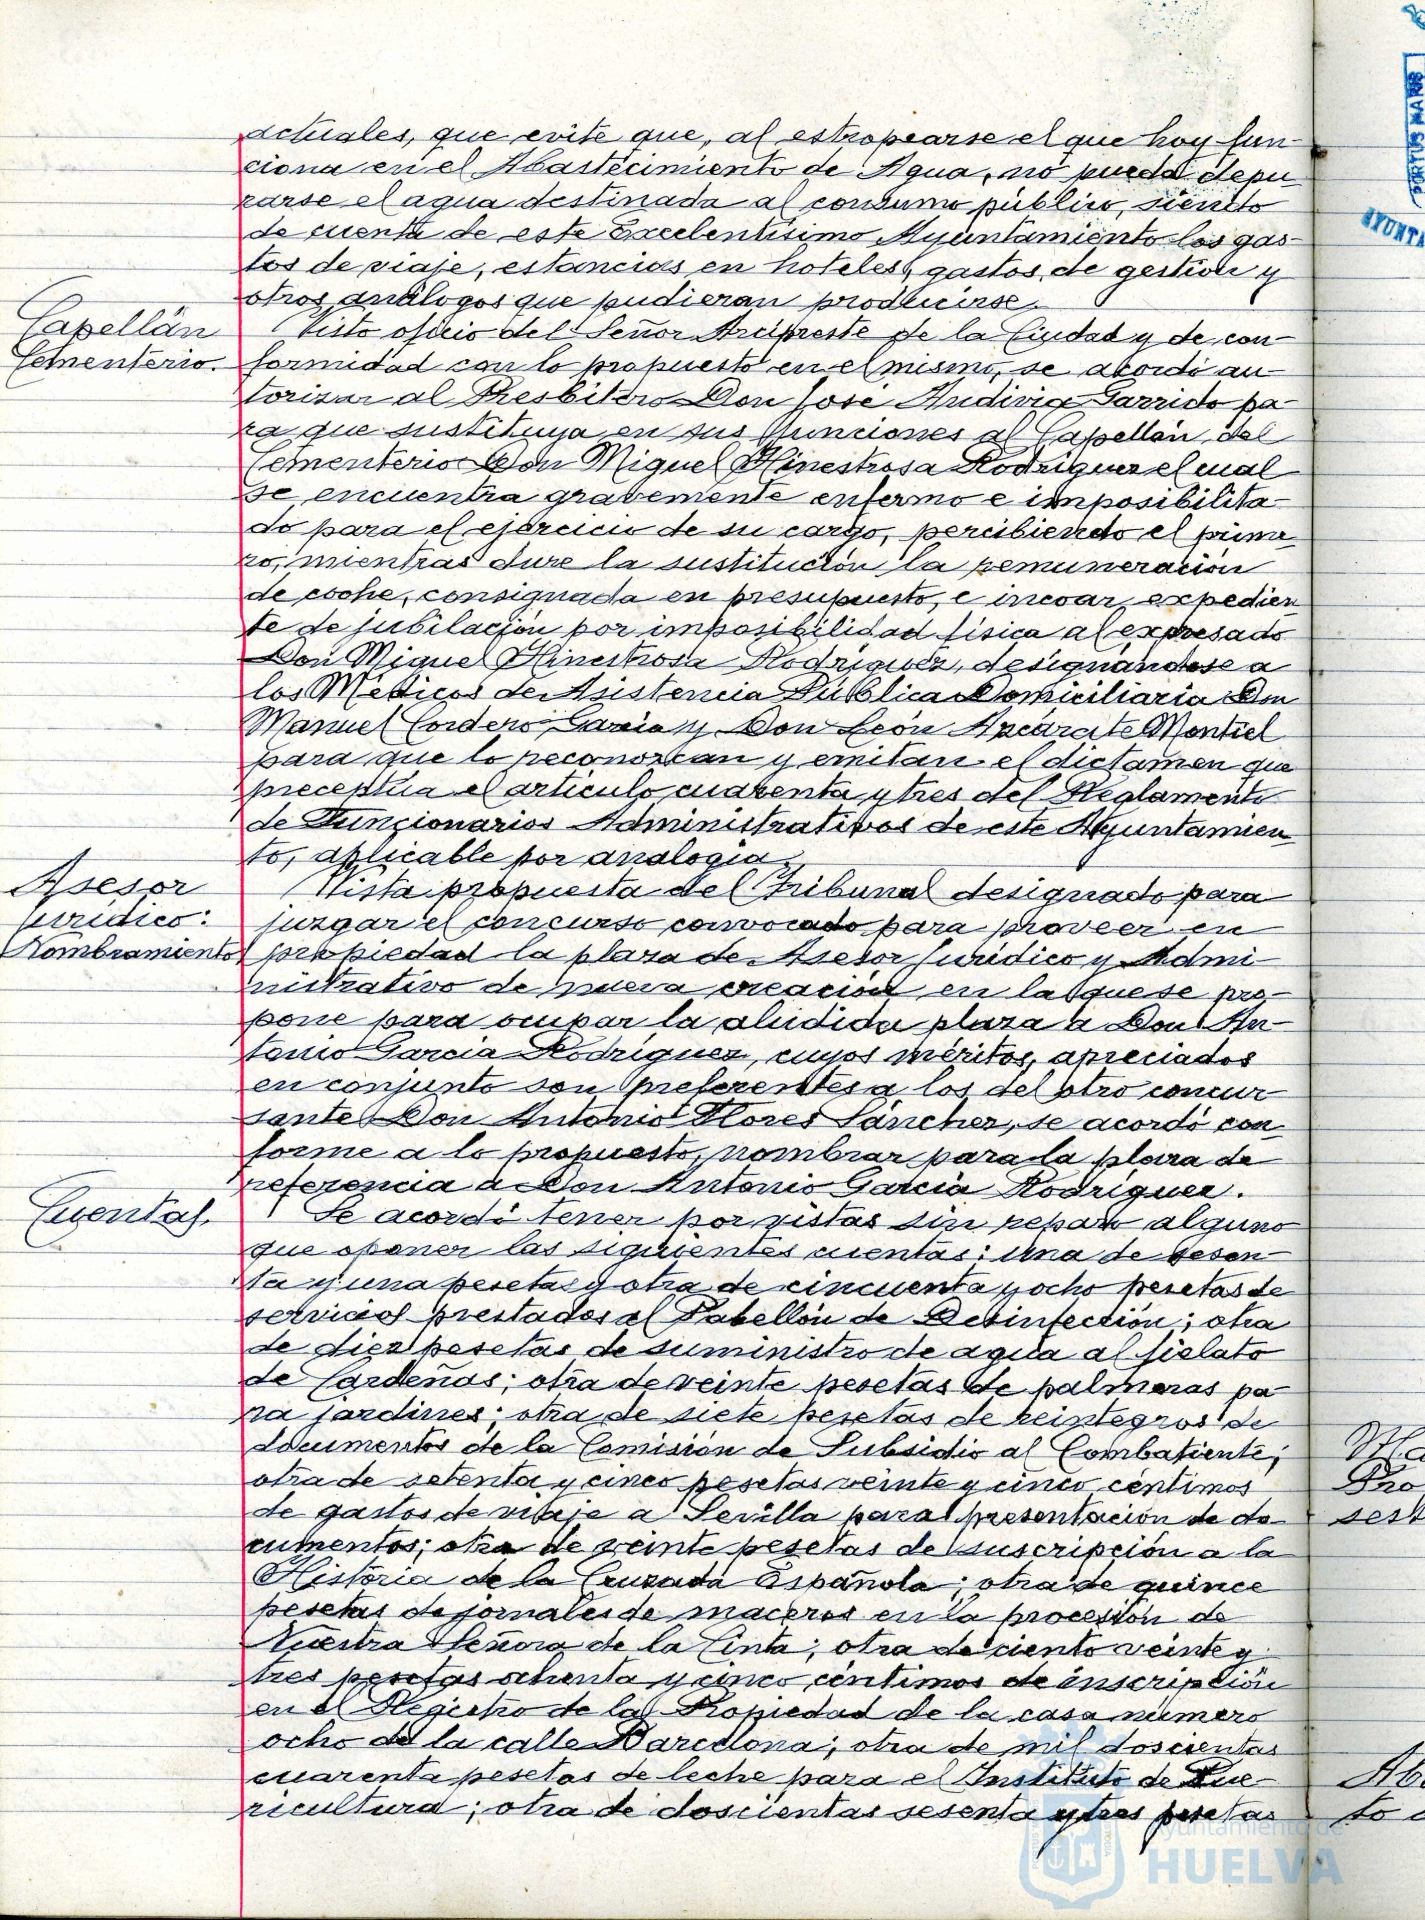 actuales, que evite que, al estropearse el que hoy fun-
ciona en el Abastecimiento de Agua, no pueda depu
rarse el agua destinada al consumo público, siendo
de cuenta de este Excelentísimo Ayuntamiento los gas-
tos de viaje, estancias en hoteles, gastos de gestión y
otros análogos que pudieran producirse.
Capellán
Cementerio.
Visto oficio del Señor Arcipreste de la Ciudad y de con-
formidad con lo propuesto en el mismo, se acordó au-
torizar al Presbítero Don José Andivia Garrido pa-
ra que sustituya en sus funciones al Capellán del
Cementerio Don Miguel Hinestrosa Rodríguez el cual
se encuentra gravemente enfermo e imposibilita-
do para el ejercicio de su cargo, percibiendo el prime
ro, mientras dure la sustitución la remuneración
de coche, consignada en presupuesto, e incoar expedien
te de jubilación por imposibilidad física al expresado
Don Miguel Hinestrosa Rodríguez, designándose a
los Médicos de Asistencia Pública Domiciliaria Don
Manuel Cordero García y Don León Azcárate Montiel
para que lo reconozcan y emitan el dictamen que
preceptúa el artículo cuarenta y tres del Reglamento
de Funcionarios Administrativos de este Ayuntamien
to, aplicable por analogía.
Asesor
jurídico:
Nombramiento
Vista propuesta del Tribunal designado para
juzgar el concurso convocado para proveer en
propiedad la plaza de Asesor Jurídico y Admi-
nistrativo de nueva creación en la que se pro-
pone para ocupar la aludida plaza a Don An-
tonio García Rodríguez, cuyos méritos, apreciados
en conjunto son preferentes a los del otro concur
sante Don Antonio Flores Sánchez, se acordó con
forme a lo propuesto, nombrar para la plaza de
referencia a Don Antonio García Rodríguez.
Cuentas.
Se acordó tener por vistas sin reparo alguno
que oponer las siguientes cuentas: una de sesen-
ta y una pesetas y otra de cincuenta y ocho pesetas de
servicios prestados al Pabellón de Desinfección; otra
de diez pesetas de suministro de agua al fielato
de Cardeñas; otra de veinte pesetas de palmeras pa-
ra jardines; otra de siete pesetas de reintegros de
documentos de la Comisión de Subsidio al Combatiente;
otra de setenta y cinco pesetas veinte y cinco céntimos
de gastos de viaje a Sevilla para presentación de do-
cumentos; otra de veinte pesetas de suscripción a la
Historia de la Cruzada Española; otra de quince
pesetas de jornales de maceros en la procesión de
Nuestra Señora de la Cinta; otra de ciento veinte y
tres pesetas ochenta y cinco céntimos de inscripción
en el Registro de la Propiedad de la casa número
ocho de la calle Barcelona; otra de mil doscientas
cuarenta pesetas de leche para el Instituto de Pue-
ricultura; otra de doscientas sesenta y tres pesetas
PORTUS MARIS
AYUNTA
Ma
Pro
sest
Ab
to d
Ayuntamiento de
HUELVA